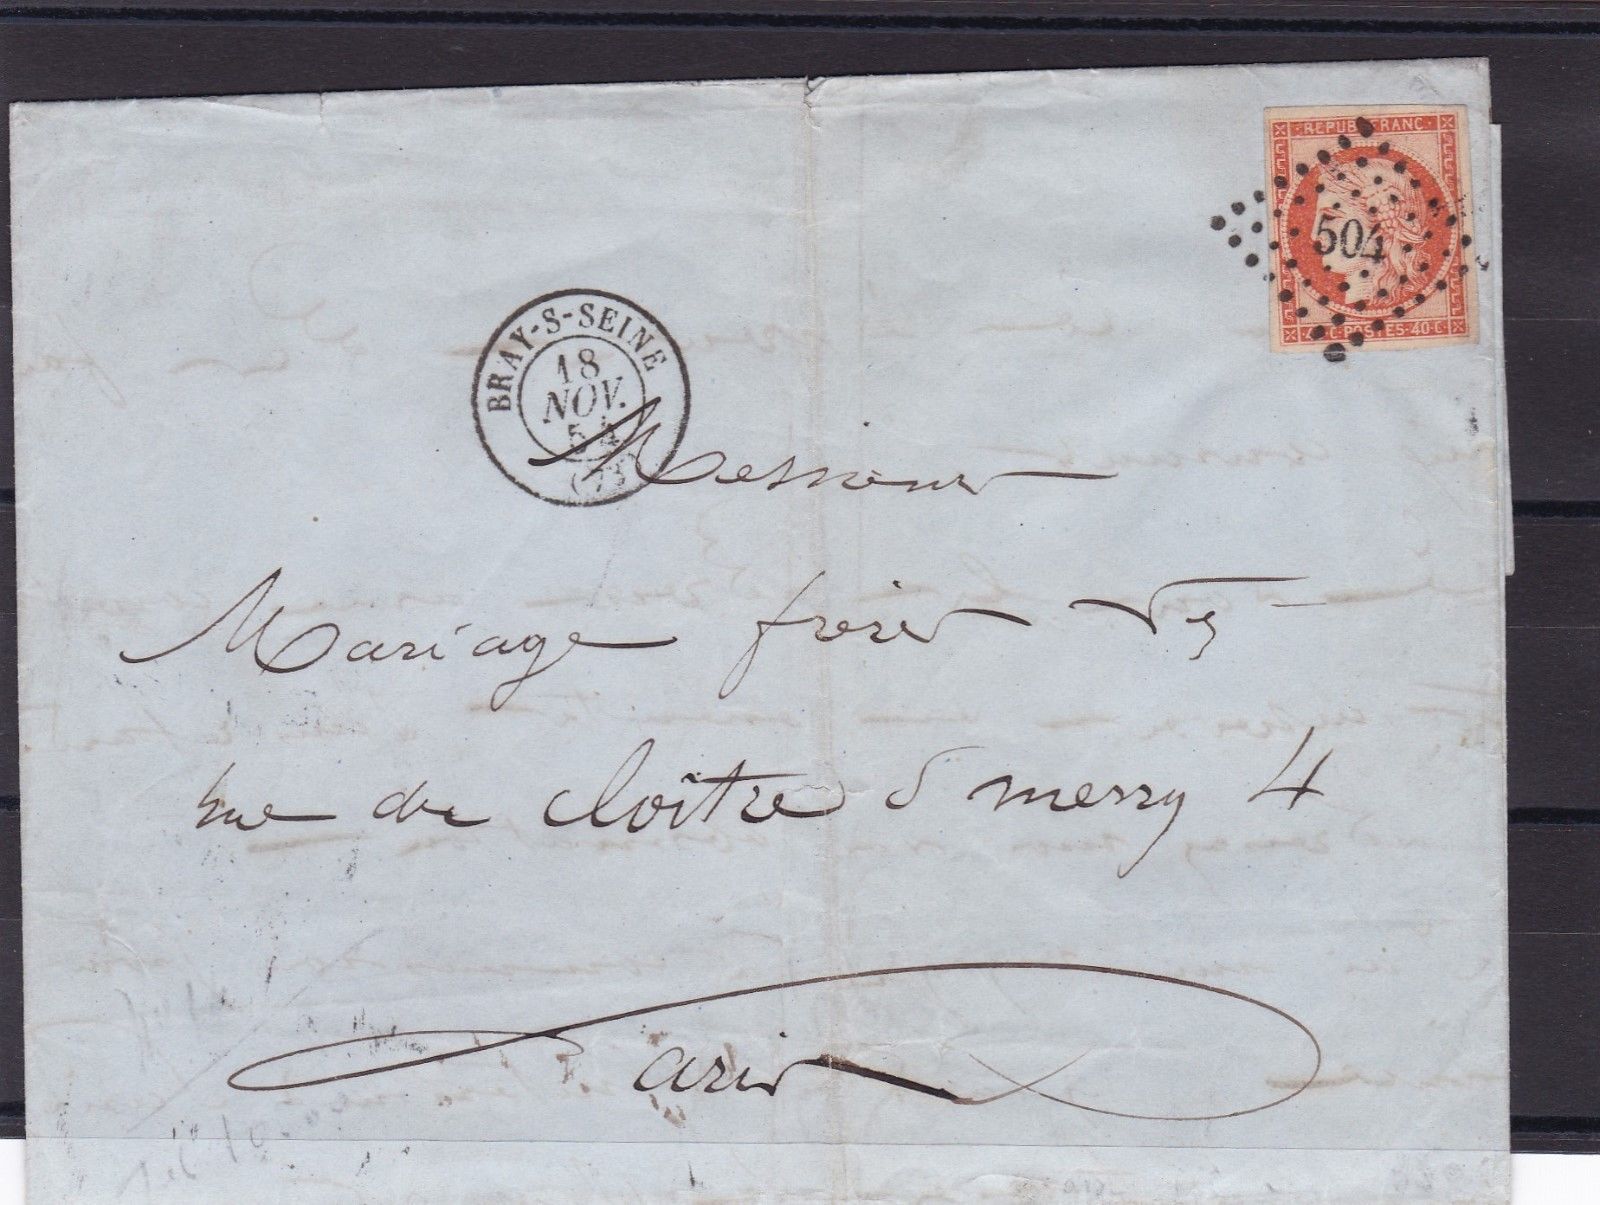 REPUB FRANC
504
40 C·POSTES·40·C
BRAY-S-SEINE
18
NOV.
54
(73)
Messieurs
Mariage frères
rue du cloître S merry 4
Paris